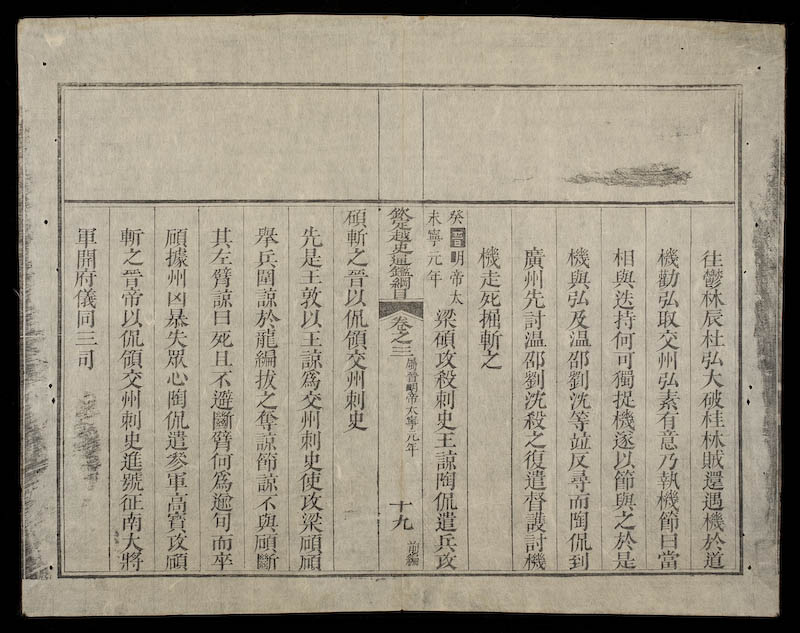 往鬱林辰杜弘大破桂林賊還遇機於道
機勸弘取交州弘素有意乃執機節曰當
相與迭持何可獨捉機遂以節與之於是
機與弘及温邵劉沈等竝反尋而陶侃到
廣州先討温邵劉沈殺之復遣督護討機
機走死掘斬之
癸未 晉明帝太寧元年 梁碩攻殺刺史王諒陶侃遣兵攻
欽定越史通鑑綱目 卷之三 屬晉明帝太寧元年 十九 前編
碩斬之晉以侃領交州刺史
先是王敦以王諒爲交州刺史使攻梁碩碩
舉兵圍諒於龍編拔之奪諒節諒不與碩斷
其左臂諒曰死且不避斷臂何爲逾旬而卒
碩據州凶暴失眾心陶侃遣參軍高寶攻碩
斬之晉帝以侃領交州刺史進號征南大將
軍開府儀同三司